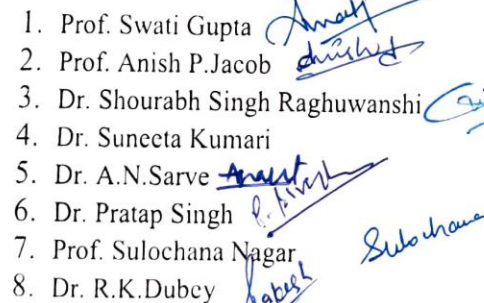 1. Prof. Swati Gupta
2. Prof. Anish P.Jacob
3. Dr. Shourabh Singh Raghuwanshi
4. Dr. Suneeta Kumari
5. Dr. A.N.Sarve
6. Dr. Pratap Singh
7. Prof. Sulochana Nagar Sulochana
8. Dr. R.K.Dubey